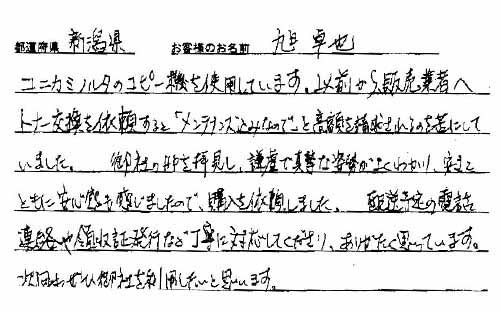 都道府県 新潟県 お客様のお名前 旭 卓也
コニカミノルタのコピー機を使用しています。以前から販売業者へ
トナー交換を依頼すると「メンテナンス込みなので」と高額を請求されるのを苦にして
いました。 御社のHPを拝見し、謙虚で真摯な姿勢がよくわかり、安さと
ともに安心感も感じましたので、購入を依頼しました。 配送予定の電話
連絡や領収証発行など丁寧に対応してくださり、ありがたく思っています。
次回もぜひ御社を利用したいと思います。